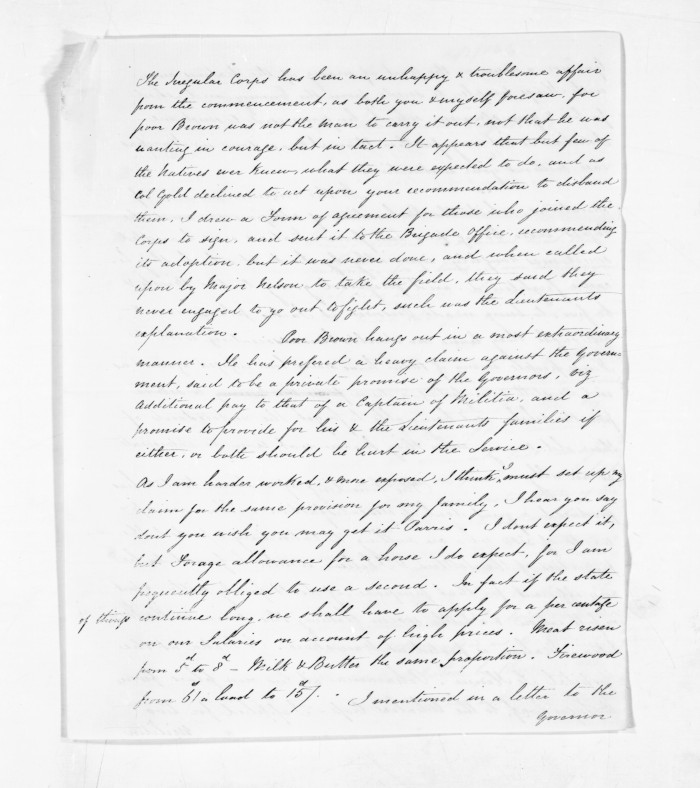 The Irregular Corps has been an unhappy & troublesome affair
from the commencement, as both you & myself foresaw, for
poor Brown was not the man to carry it out, not that he was
wanting in courage, but in tact. It appears that but few of
the Natives ever knew, what they were expected to do, and as
Col Gold declined to act upon your recommendation to disband
them, I drew a Form of agreement for those who joined the
Corps to sign, and sent it to the Brigade Office, recommending
its adoption, but it was never done, and when called
upon by Major Nelson to take the field, they said they
never engaged to go out to fight, such was the Lieutenants
explanation. Poor Brown hangs out in a most extraordinary
manner. He has prefered a heavy claim against the Govern-
ment, said to be a private promise of the Governors, viz
Additional pay to that of a Captain of Militia, and a
promise to provide for his & the Lieutenants families if
either, or both should be hurt in the Service.
As I am harder worked, & more exposed, I think I must set up my
claim for the same provision for my family, I hear you say
dont you wish you may get it Parris. I dont expect it,
but Forage allowance for a horse I do expect, for I am
frequently obliged to use a second. In fact if the state
of things continue long, we shall have to apply for a per centate
on our Salaries on account of high prices. Meat risen
from 5d to 8d - Milk & Butter the same proportion. Firewood
from 6/ a load to 15/. I mentioned in a letter to the
Governor